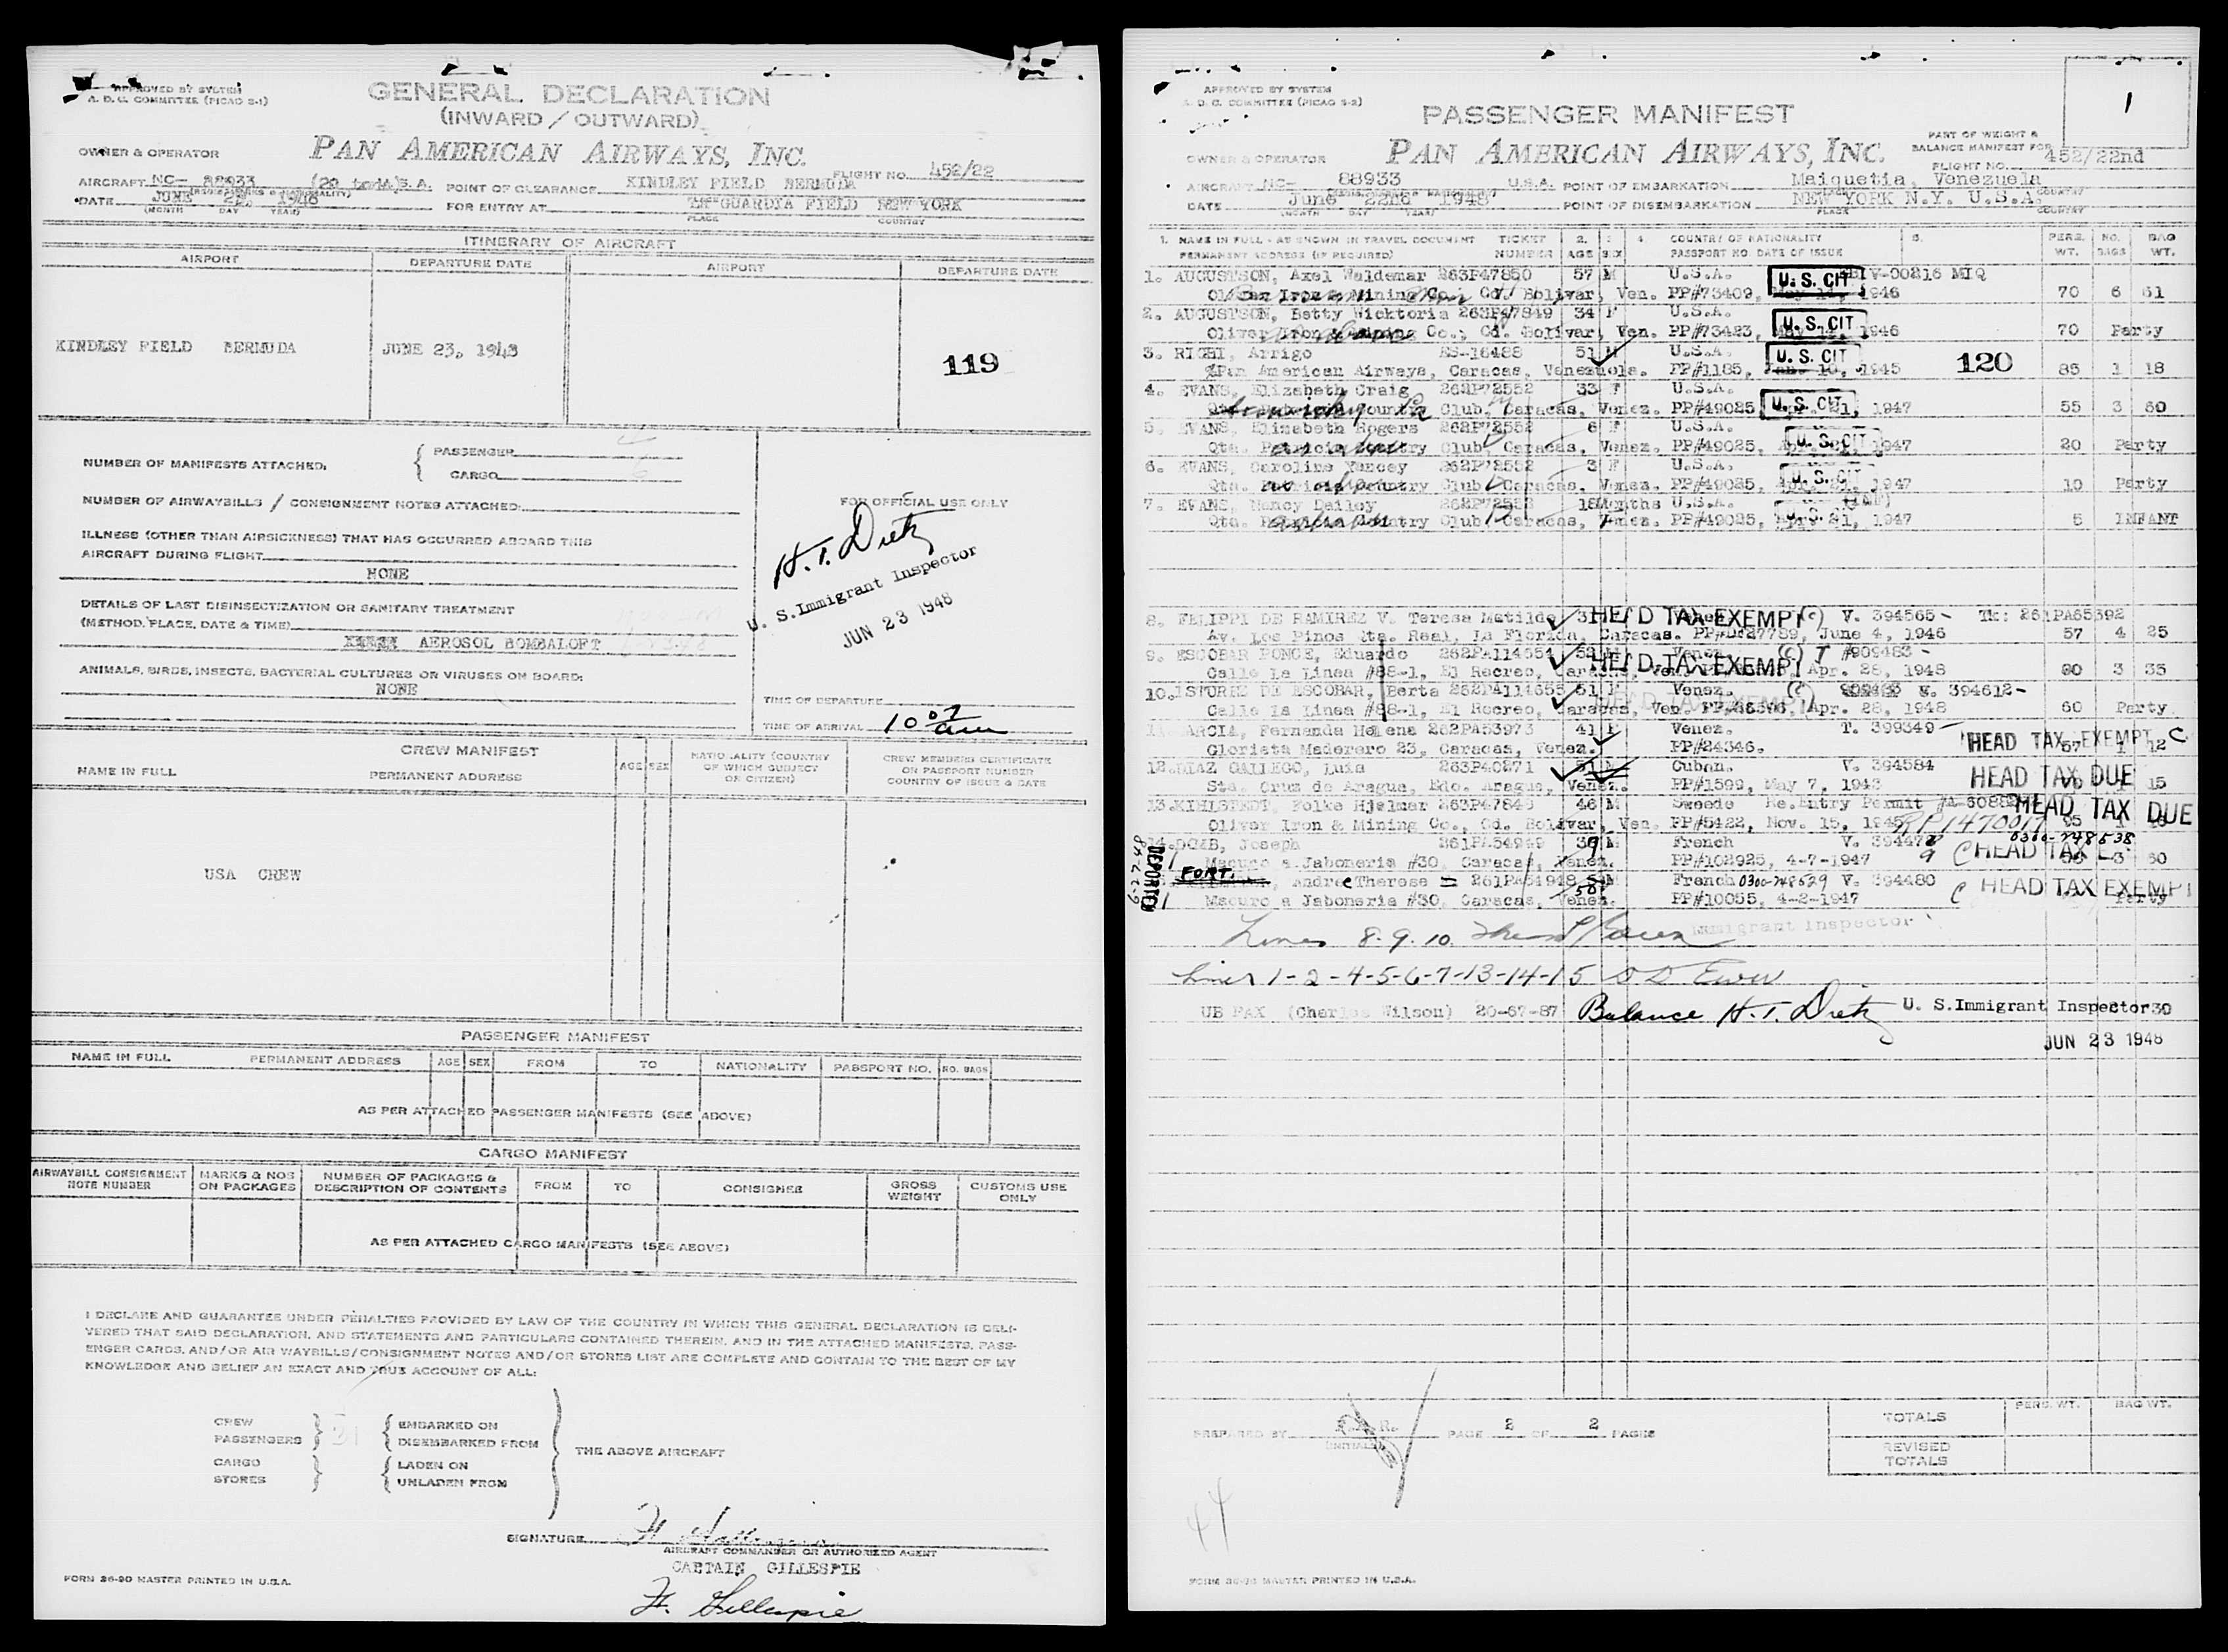 APPROVED BY SYSTEM
A. D. C. COMMITTEE (PICAO S-1)
GENERAL DECLARATION
(INWARD / OUTWARD)
OWNER & OPERATOR
PAN AMERICAN AIRWAYS, INC.
AIRCRAFT NC- 88933 U.S.A. POINT OF CLEARANCE KINDLEY FIELD BERMUDA FLIGHT NO. 452/22
(REGISTRATION MARKS & NATIONALITY)
DATE JUNE 1948 FOR ENTRY AT LA GUARDIA FIELD NEW YORK
(MONTH DAY YEAR) PLACE COUNTRY
ITINERARY OF AIRCRAFT
AIRPORT DEPARTURE DATE AIRPORT DEPARTURE DATE
KINDLEY FIELD BERMUDA JUNE 23, 1948
119
NUMBER OF MANIFESTS ATTACHED: { PASSENGER
CARGO
NUMBER OF AIRWAYBILLS / CONSIGNMENT NOTES ATTACHED:
ILLNESS (OTHER THAN AIRSICKNESS) THAT HAS OCCURRED ABOARD THIS
AIRCRAFT DURING FLIGHT
NONE
DETAILS OF LAST DISINSECTIZATION OR SANITARY TREATMENT
(METHOD, PLACE, DATE & TIME)
AEROSOL BOMBALOFT
ANIMALS, BIRDS, INSECTS, BACTERIAL CULTURES OR VIRUSES ON BOARD:
NONE
FOR OFFICIAL USE ONLY
H. T. Dietz
U. S. Immigrant Inspector
JUN 23 1948
TIME OF DEPARTURE
TIME OF ARRIVAL 10 07 am
CREW MANIFEST
NAME IN FULL PERMANENT ADDRESS AGE SEX NATIONALITY (COUNTRY OF WHICH SUBJECT OR CITIZEN) CREW MEMBERS CERTIFICATE OR PASSPORT NUMBER COUNTRY OF ISSUE & DATE
USA CREW
PASSENGER MANIFEST
NAME IN FULL PERMANENT ADDRESS AGE SEX FROM TO NATIONALITY PASSPORT NO. NO. BAGS
AS PER ATTACHED PASSENGER MANIFESTS (SEE ABOVE)
CARGO MANIFEST
AIRWAYBILL CONSIGNMENT NOTE NUMBER MARKS & NOS ON PACKAGES NUMBER OF PACKAGES & DESCRIPTION OF CONTENTS FROM TO CONSIGNEE GROSS WEIGHT CUSTOMS USE ONLY
AS PER ATTACHED CARGO MANIFESTS (SEE ABOVE)
I DECLARE AND GUARANTEE UNDER PENALTIES PROVIDED BY LAW OF THE COUNTRY IN WHICH THIS GENERAL DECLARATION IS DELI-
VERED THAT SAID DECLARATION, AND STATEMENTS AND PARTICULARS CONTAINED THEREIN, AND IN THE ATTACHED MANIFESTS, PASS-
ENGER CARDS, AND/OR AIR WAYBILLS/CONSIGNMENT NOTES AND/OR STORES LIST ARE COMPLETE AND CONTAIN TO THE BEST OF MY
KNOWLEDGE AND BELIEF AN EXACT AND TRUE ACCOUNT OF ALL:
CREW EMBARKED ON
PASSENGERS DISEMBARKED FROM
THE ABOVE AIRCRAFT
CARGO LADEN ON
STORES UNLADEN FROM
SIGNATURE
AIRCRAFT COMMANDER OR AUTHORIZED AGENT
CAPTAIN GILLESPIE
H. Gillespie
FORM 36-90 MASTER PRINTED IN U.S.A.
APPROVED BY SYSTEM
A. D. C. COMMITTEE (PICAO S-2)
1
PASSENGER MANIFEST
PART OF WEIGHT &
BALANCE MANIFEST FOR
OWNER & OPERATOR PAN AMERICAN AIRWAYS, INC.
FLIGHT NO. 452/22nd
AIRCRAFT NC- 88933 U.S.A. POINT OF EMBARKATION Maiquetia, Venezuela
DATE June 22nd 1948 POINT OF DISEMBARKATION NEW YORK N.Y. U.S.A.
(MONTH DAY YEAR) PLACE COUNTRY
1. NAME IN FULL - AS SHOWN IN TRAVEL DOCUMENT TICKET 2. 3 4. COUNTRY OF NATIONALITY 5. PERS. NO. BAG
PERMANENT ADDRESS (IF REQUIRED) NUMBER AGE SEX PASSPORT NO DATE OF ISSUE WT. BAGS WT.
1. AUGUSTSON, Axel Waldemar 263P47850 57 M U.S.A. U. S. CIT V-00216 MIQ
Oliver Iron & Mining Co., Cd. Bolivar, Ven. PP#73409, 1946 70 6 61
2. AUGUSTSON, Betty Wicktoria 263P47849 34 F U.S.A. U. S. CIT
Oliver Iron & Mining Co., Cd. Bolivar, Ven. PP#73423, 1946 70 Party
3. RIGHI, Arrigo ES-16488 51 M U.S.A. U. S. CIT
%Pan American Airways, Caracas, Venezuela. PP#1185, 1945 120 85 1 18
4. EVANS, Elizabeth Craig 262P72552 33 F U.S.A. U. S. CIT
Qta. Patricia Country Club, Caracas, Venez. PP#49025, 1947 55 3 60
5. EVANS, Elizabeth Rogers 262P72552 6 F U.S.A. U. S. CIT
Qta. Patricia Country Club, Caracas, Venez. PP#49025, 1947 20 Party
6. EVANS, Caroline Yancey 262P72552 3 F U.S.A. U. S. CIT
Qta. Patricia Country Club, Caracas, Venez. PP#49025, 1947 10 Party
7. EVANS, Nancy Dailey 262P72552 Months U.S.A. U. S. CIT
Qta. Country Club, Caracas, Venez. PP#49025, 21, 1947 5 INFANT
8. FELIPPI DE RAMIREZ V. Teresa Matilde HEAD TAX EXEMPT (c) V. 394565- Tk: 261PA65392
Av. Los Pinos Qta. Real, La Florida, Caracas. June 4, 1946 57 4 25
9. ESCOBAR PONCE, Eduardo 262PA114654 52 M Venez. HEAD TAX EXEMPT (c) T #909483-
Calle La Linea #88-1, El Recreo, Caracas, Apr. 28, 1948 90 3 35
10. ISTURRZ DE ESCOBAR, Berta 262PA114655 51 F Venez. (c) 394612-
Calle La Linea #88-1, El Recreo, Caracas, Ven. Apr. 28, 1948 60 Party
11. GARCIA, Fernanda Helena 262PA53973 41 F Venez. T. 399349- HEAD TAX EXEMPT C
Glorieta Maderero 23, Caracas, Venez. PP#24346. 57 1 12
12. DIAZ GALLEGO, Luis 263P40271 51 M Cuban. V. 394584 HEAD TAX DUE
Sta. Cruz de Aragua, Edo. Aragua, Venez. PP#1599, May 7, 1943 15
13. KIHLSTEDT, Folke Hjelmar 263P47848 46 M Sweede Re.Entry Permit HEAD TAX DUE
Oliver Iron & Mining Co., Cd. Bolivar, Ven. PP#5422, Nov. 15, 1945 RP1470017
14. DOMB, Joseph 261PA54949 39 M French V. 394479 0300-748538
Maduro a Jaboneria #30, Caracas, Venez. PP#102925, 4-7-1947 C HEAD TAX 3 60
FORT. Andre Therese 261PA54948 M French 0300-748539 V. 394480
Maduro a Jaboneria #30, Caracas, Venez. PP#10055, 4-2-1947 C HEAD TAX EXEMPT Party
DEPORTED
Immigrant Inspector
Lines 8. 9. 10.
Lines 1-2-4-5-6-7-13-14-15
UB PAX (Charles Wilson) 20-67-87 Balance H. T. Dietz U. S. Immigrant Inspector 30
JUN 23 1948
PREPARED BY PAGE 2 OF 2 PAGES
(INITIALS)
PERS. WT. BAG WT.
TOTALS
REVISED TOTALS
44
FORM 36-90 MASTER PRINTED IN U.S.A.